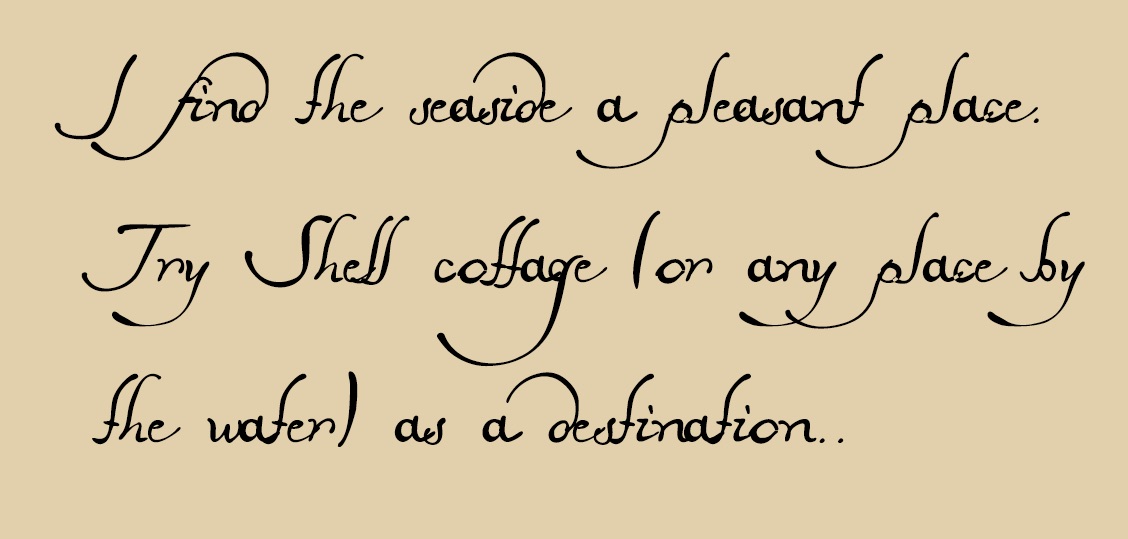 I find the seaside a pleasant place.
Try Shell cottage (or any place by
the water) as a destination..